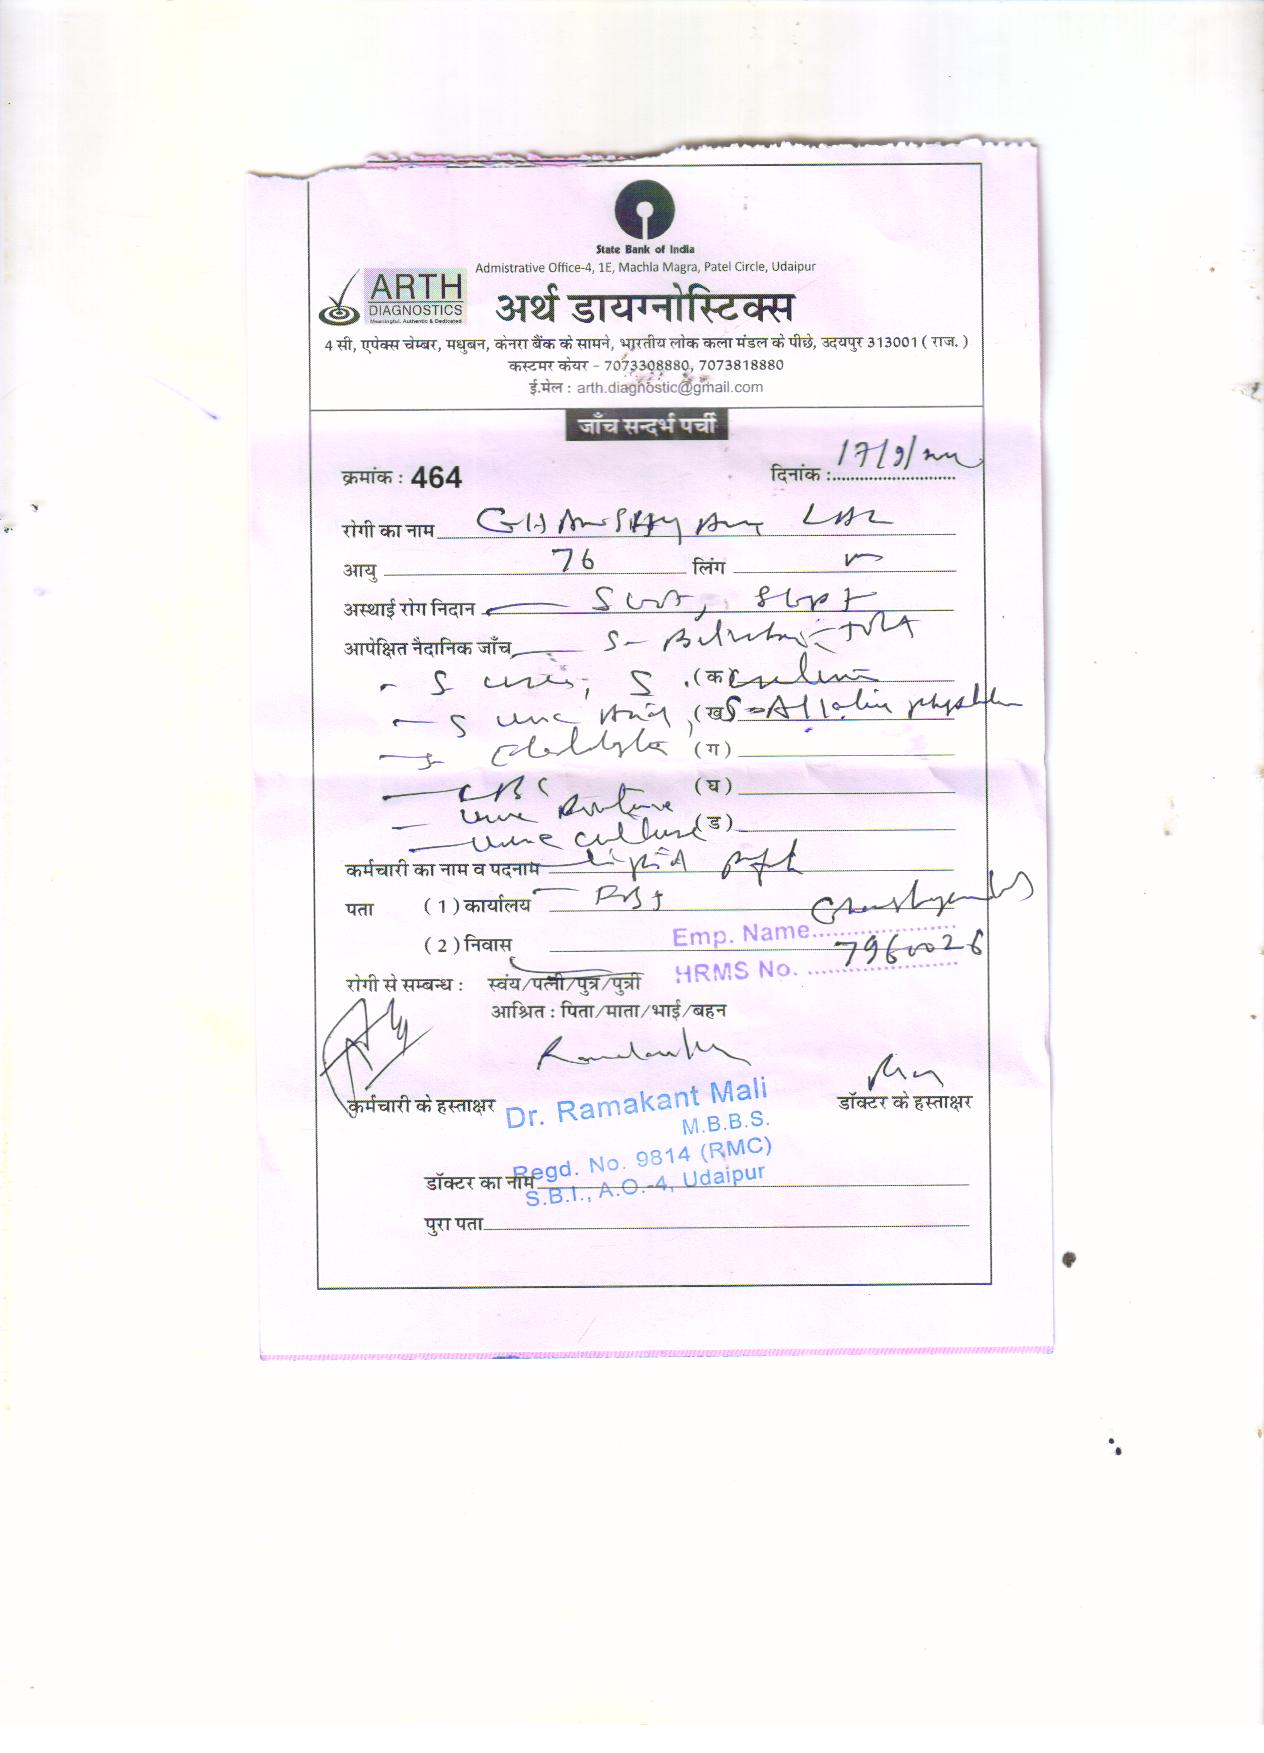 State Bank of India
Admistrative Office-4, 1E, Machla Magra, Patel Circle, Udaipur
ARTH
DIAGNOSTICS
Meaningful, Authentic & Dedicated
अर्थ डायग्नोस्टिक्स
4 सी, एपेक्स चेम्बर, मधुबन, केनरा बैंक के सामने, भारतीय लोक कला मंडल के पीछे, उदयपुर 313001 ( राज. )
कस्टमर केयर - 7073308880, 7073818880
ई.मेल : arth.diagnostic@gmail.com
जाँच सन्दर्भ पर्ची
क्रमांक : 464 दिनांक : 17/9/
रोगी का नाम GHANSHYAM LAL
आयु 76 लिंग
अस्थाई रोग निदान SGOT, SGPT
आपेक्षित नैदानिक जाँच S-
S S (क)
S Uric Acid, (ख) S-
(ग)
CBC (घ)
Urine Routine
Urine culture (ड)
कर्मचारी का नाम व पदनाम Lipid
पता ( 1 ) कार्यालय
Emp. Name
( 2 ) निवास 7960026
HRMS No.
रोगी से सम्बन्ध : स्वंय/पत्नी/पुत्र/पुत्री
आश्रित : पिता/माता/भाई/बहन
कर्मचारी के हस्ताक्षर डॉक्टर के हस्ताक्षर
Dr. Ramakant Mali
M.B.B.S.
Regd. No. 9814 (RMC)
डॉक्टर का नाम
S.B.I., A.O.-4, Udaipur
पुरा पता